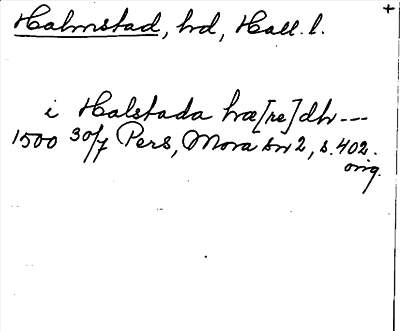 Halmstad, hd, Hall. l. +
i Halstada hæ[re]dh ---
1500 30/7 Pers, Mora sn 2, s. 402.
orig.